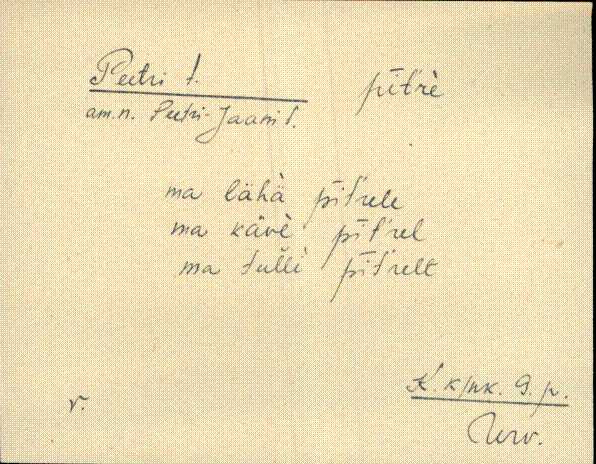 Peetri t. pīt́rè
am.n. Peetri-Jaani t.
ma lähä pīt́rele
ma kävè pīt́rel
ma tulĺì pīt́relt
K. k/nk. 9. p.
v. Urv.